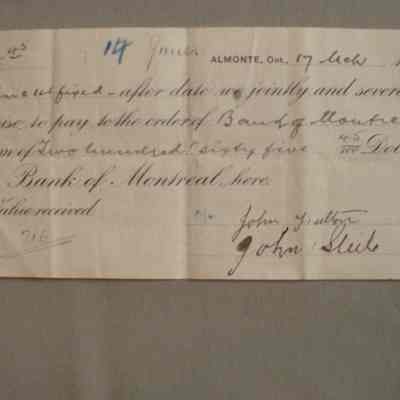 45 14 ALMONTE, Ont. 17 Mch
fixed - after date we jointly and sever
to pay to the order of Bank of Montre
m of Two hundred & sixty five 45/100 Dol
Bank of Montreal, here.
Value received
716
John Fulton
John Steele